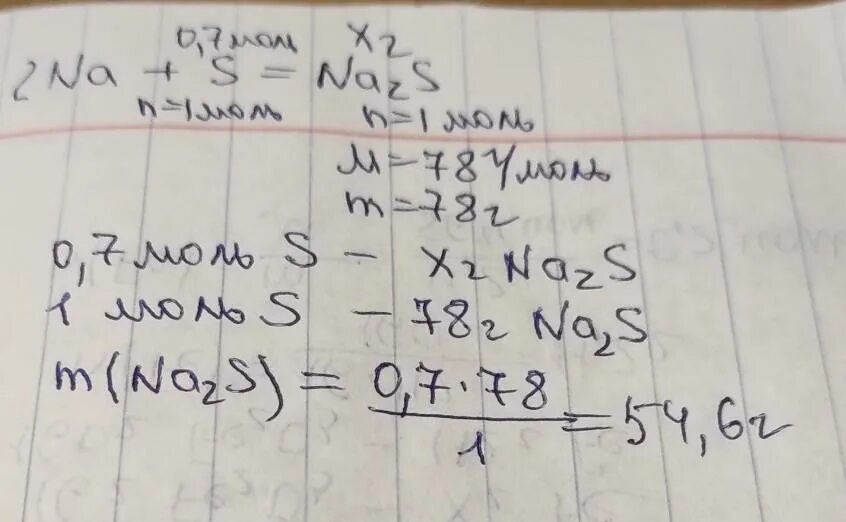 0,7 моль хг
2Na + S = Na₂S
n=1 моль n=1 моль
M=78 г/моль
m=78г
0,7 моль S – хг Na₂S
1 моль S – 78г Na₂S
m(Na₂S) = 0,7·78 / 1 = 54,6г